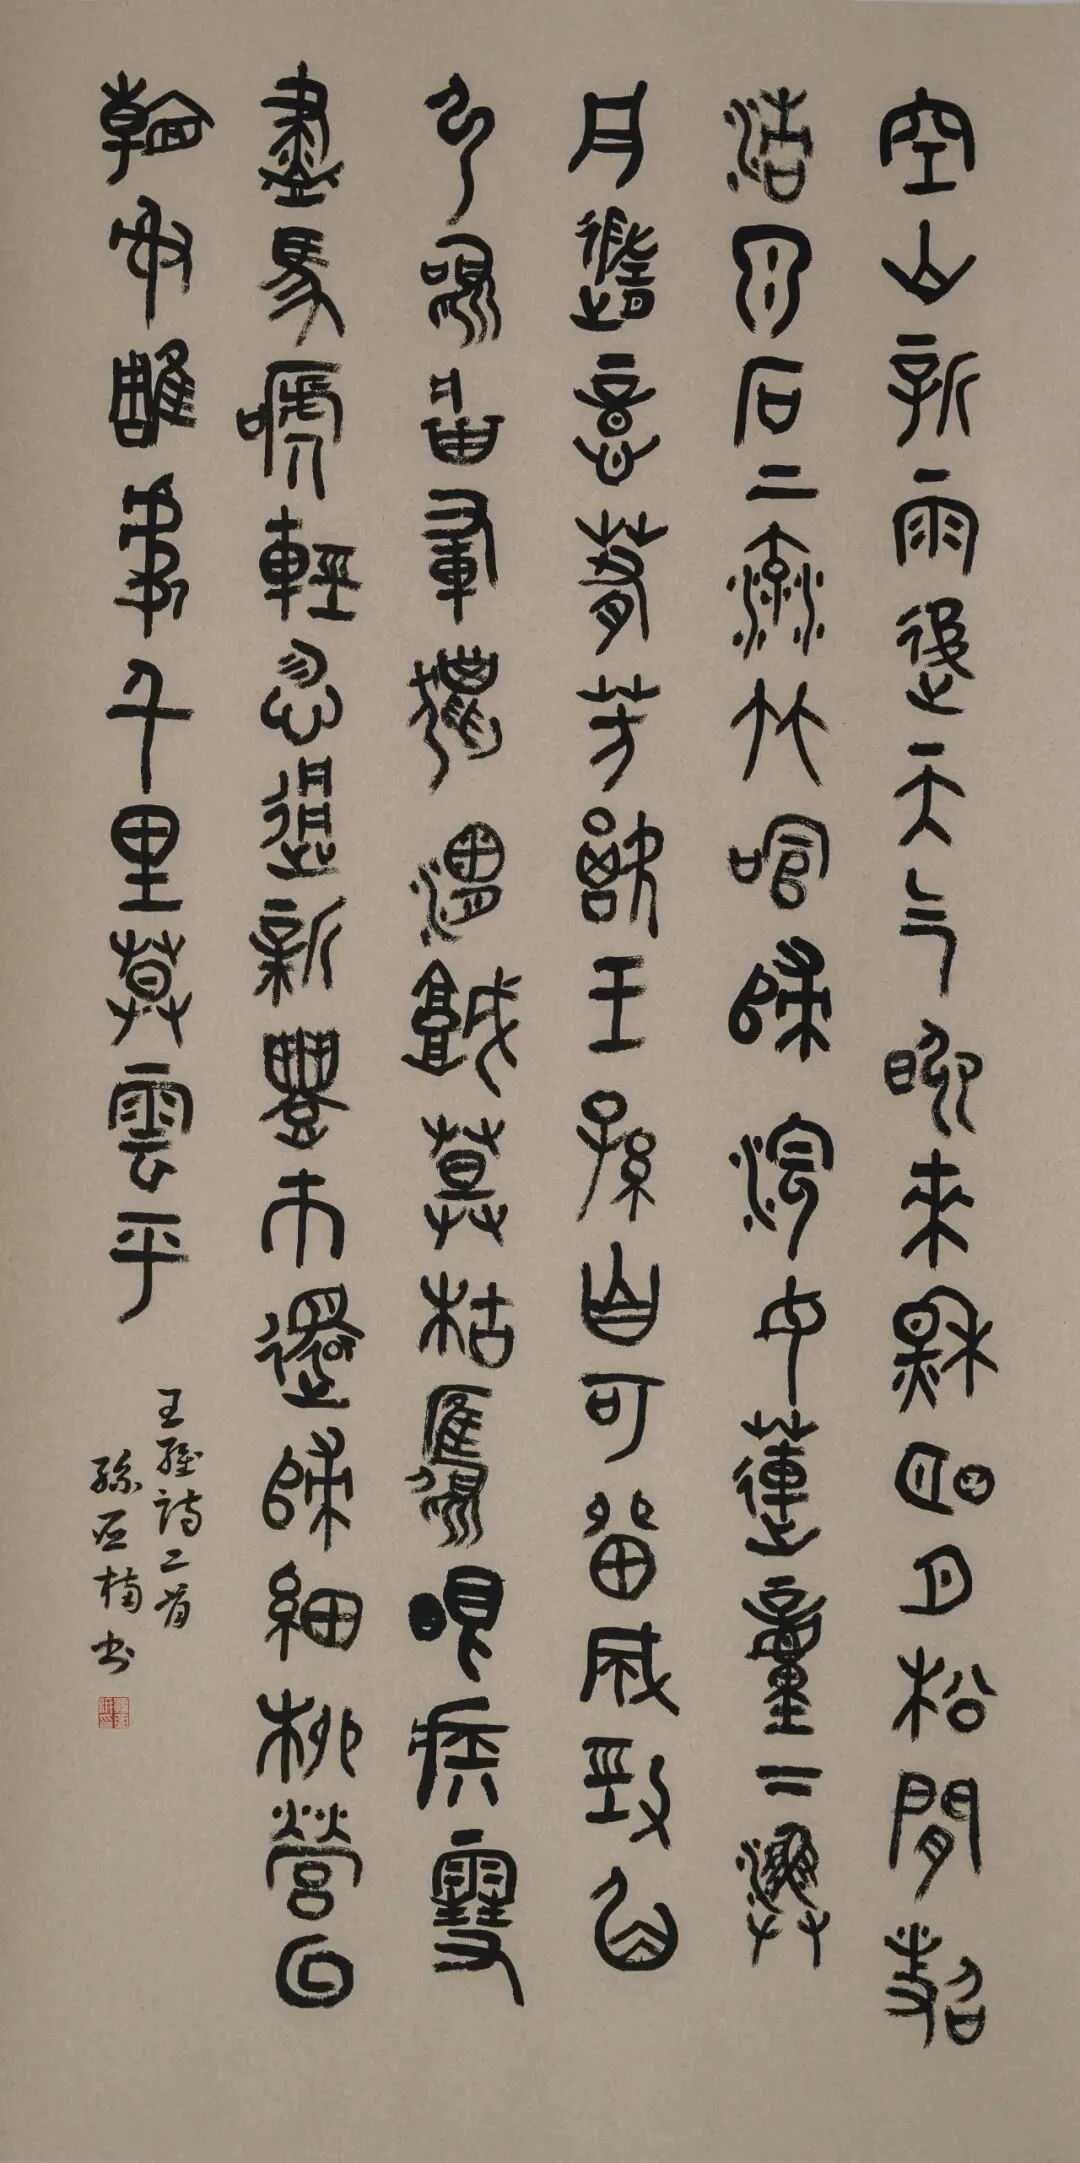 空山新雨後天气晚来秋明月松間照
清泉石上流竹喧歸浣女蓮動下漁
舟隨意春芳歇王孫自可留風勁角
弓鳴將軍獵渭城草枯鷹眼疾雪
盡馬蹄輕忽過新豐市還歸細柳營回
看射雕處千里莫雲平
王維詩二首
孫亚楠书